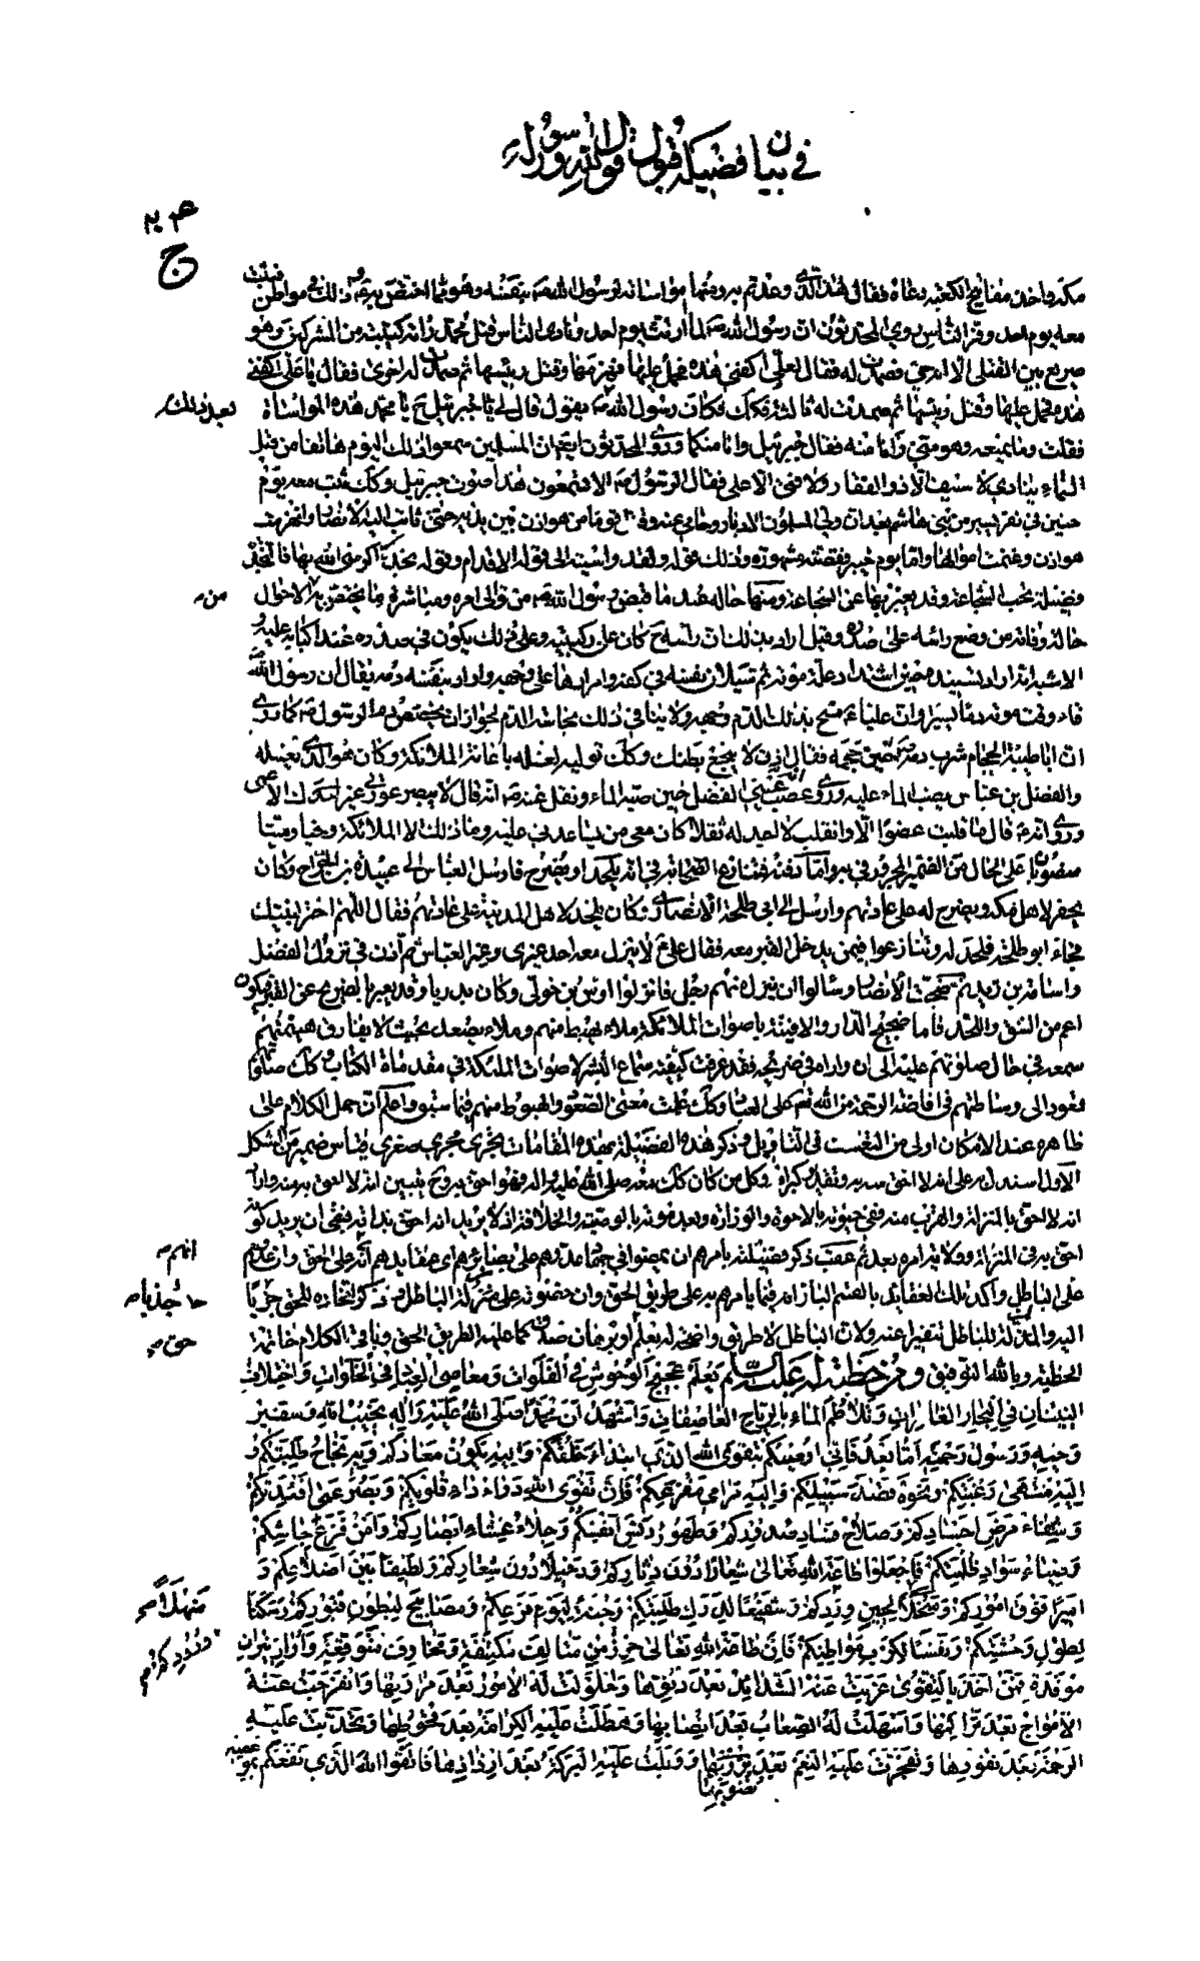 في بيان فضيلة قبول قول الله ورسوله
٢٠٤
ج
مكة واخذ مفاتيح الكعبة دعاه فقال هذا الذي وعدتم به ومنها مواساته لرسول الله ص بنفسه وهو مما اختص به ع وذلك في مواطن فثبت
معه يوم احد وفر الناس روي المحدثون ان رسول الله ص لما ارتث يوم احد ونادى الناس قتل محمد راته كتيبة من المشركين وهو
صريع بين القتلى الا انه حي فصمدت له فقال لعلي اكفني هذه فحمل عليها فهزمها وقتل رئيسها ثم صمدت له اخرى فقال يا علي اكفني
هذه فحمل عليها وقتل رئيسها ثم صمدت له ثالثة فكذلك فكان رسول الله ص يقول قال لي يا جبرئيل ح يا محمد هذه المواساة
بعد ذلك
فقلت وما يمنعه وهو مني وانا منه فقال جبرئيل وانا منكما وروى المحدثون ايضا ان المسلمين سمعوا ذلك اليوم هاتفا من قبل
السماء ينادي لا سيف الا ذو الفقار ولا فتى الا علي فقال الرسول ص الا تسمعون هذا صوت جبرئيل وكذلك ثبت معه يوم
حنين في نفر يسير من بني هاشم بعد ان ولى المسلمون الادبار وحامى عنه وقتل قوما من هوازن بين يديه حتى ثابت اليه الانصار وانهزمت
هوازن وغنمت اموالها واما يوم خيبر فقصته مشهورة وذلك قوله ولقد واسيته الى قوله الاقدام وقوله نجدة اكرمني الله بها فالنجدة
فضيلة تحت الشجاعة وقد يعبر بها عن الشجاعة ومنها حاله عند ما قبض رسول الله ص من تولى امره ومباشرة ما يختص به من الاحوال
من
حالة وفاته من وضع راسه على صدره وقيل اراد بذلك ان راسه ح كان على ركبتيه وعلى ذلك يكون في صدره عند اكبابه عليه و
الاشبه انه اراد تسنيده حين اشتداد علة موته ثم سيلان نفسه في كفه وامرارها على وجهه واراد بنفسه دمه يقال ان رسول الله
قاء وقت موته دما يسيرا وان عليا ع مسح بذلك الدم وجهه ولا ينافي ذلك نجاسة الدم لجواز ان يختص دم الرسول ص كما روي
ان ابا طيبة الحجام شرب دمه ص حين حجمه فقال اذن لا يبجع بطنك وكذلك توليه لغسله باعانة الملائكة وكان هو الذي يغسله
والفضل بن عباس يصب الماء عليه وروي انه عصب عيني الفضل حين صبه الماء ونقل عنه ص انه قال لا يبصر عورتي غيرك احد الا عمى
وروي انه ع قال ما قلبت عضوا الا وانقلب لا اجد له ثقلا كان معي من يساعدني عليه وما ذلك الا الملائكة وحيا وميتا
منصوبان على الحال من الضمير المجرور في به واما دفنه فتنازع الصحابة في انه يلحد او يضرح فارسل العباس الى عبيدة بن الجراح وكان
يحفر لاهل مكة ويضرح لهم على عادتهم وارسل الى ابي طلحة الانصاري وكان يلحد لاهل المدينة على عادتهم فقال اللهم اختر لنبيك
فجاء ابو طلحة فلحد له وتنازعوا فيمن يدخل القبر معه فقال علي ع لا ينزل معه احد غيري وغير العباس ثم اذن في نزول الفضل
واسامة بن زيد ثم ضجت الانصار وسالوا ان ينزل منهم رجل فانزلوا اوس بن خولي وكان بدريا وقد يعبر بالضريح عن القبر فيكون
اعم من الشق واللحد فاما ضجيج الدار والافنية باصوات الملائكة ملاء يهبط منهم وملاء يصعد بحيث لا يفارق هينمتهم
سمعه في حال صلوتهم عليه الى ان واراه في ضريحه فقد عرفت كيفية سماع البشر لاصوات الملئكة في مقدمات الكتاب وكذلك صلوتهم
تعود الى وساطتهم في افاضة الرحمة من الله تعالى على العباد وكذلك علمت معنى الصعود والهبوط منهم فيما سبق واعلم ان حمل الكلام على
ظاهره عند الامكان اولى من التعسف في التاويل وذكر هذه الفضيلة بهذه المقامات يجري مجرى صغرى قياس ضمير من الشكل
الاول استدل به على انه لا احق منه به وتقدير كبراه وكل من كان كذلك معه صلى الله عليه واله فهو احق به وح يتبين انه لا احق به منه واراد
انه لا احق بالمنزلة والقرب منه ففي حيوته بالاخوة والوزارة وبعد موته بالوصية والخلافة اذ لا يريد انه احق بذاته فبقي ان يريد كونه
احق به في المنزلة وولاية امره بعده ثم عقب ذكر فضيلته بامرهم ان يمضوا في جهاد عدوهم على بصائرهم اي عقايدهم انه على الحق وان عدوهم
انهم
على الباطل واكد تلك العقايد بالقسم البار انه فيما يامرهم به على طريق الحق وان خصومه على مزلة الباطل وذكر الجادة للحق جريا
جاذبا
اليه والمزلة للباطل تنفيرا عنه ولان الباطل لا طريق واضح له بعلم او برهان صدق كما عليه الطريق الحق وباقي الكلام خاتمة
حق
الخطبة وبالله التوفيق ومن خطبة له عليه السلم يعلم عجيج الوحوش في الفلوات ومعاصي العباد في الخلوات واختلاف
النينان في البحار الغامرات وتلاطم الماء بالرياح العاصفات واشهد ان محمدا صلى الله عليه واله نجيب الله وسفير
وحيه ورسول رحمته اما بعد فاني اوصيكم بتقوى الله الذي ابتداء خلقكم واليه يكون معادكم وبه نجاح طلبتكم و
اليه منتهى رغبتكم ونحوه قصد سبيلكم واليه مرامي مفزعكم فان تقوى الله دواء داء قلوبكم وبصر عمى افئدتكم
وشفاء مرض اجسادكم وصلاح فساد صدوركم وطهور دنس انفسكم وجلاء غشاء ابصاركم وامن فزع جاشكم
وضياء سواد ظلمتكم فاجعلوا طاعة الله تعالى شعارا دون دثاركم ودخيلا دون شعاركم ولطيفا بين اضلاعكم و
اميرا فوق اموركم ومنهلا لحين وردكم وشفيعا لدرك طلبتكم وجنة ليوم فزعكم ومصابيح لبطون قبوركم وسكنا
منهلا
لطول وحشتكم ونفسا لكرب مواطنكم فان طاعة الله تعالى حرز من متالف مكتنفة ومخاوف متوقعة واوار نيران
ورودكم
موقدة فمن اخذ بالتقوى عزبت عنه الشدائد بعد دنوها واحلولت له الامور بعد مرارتها وانفرجت عنه
الامواج بعد تراكمها واسهلت له الصعاب بعد انصابها وهطلت عليه الكرامة بعد قحوطها وتحدبت عليه
الرحمة بعد نفورها وتفجرت عليه النعم بعد نضوبها ووبلت عليه البركة بعد ارذاذها فاتقوا الله الذي نفعكم بموعظته
نضوبها